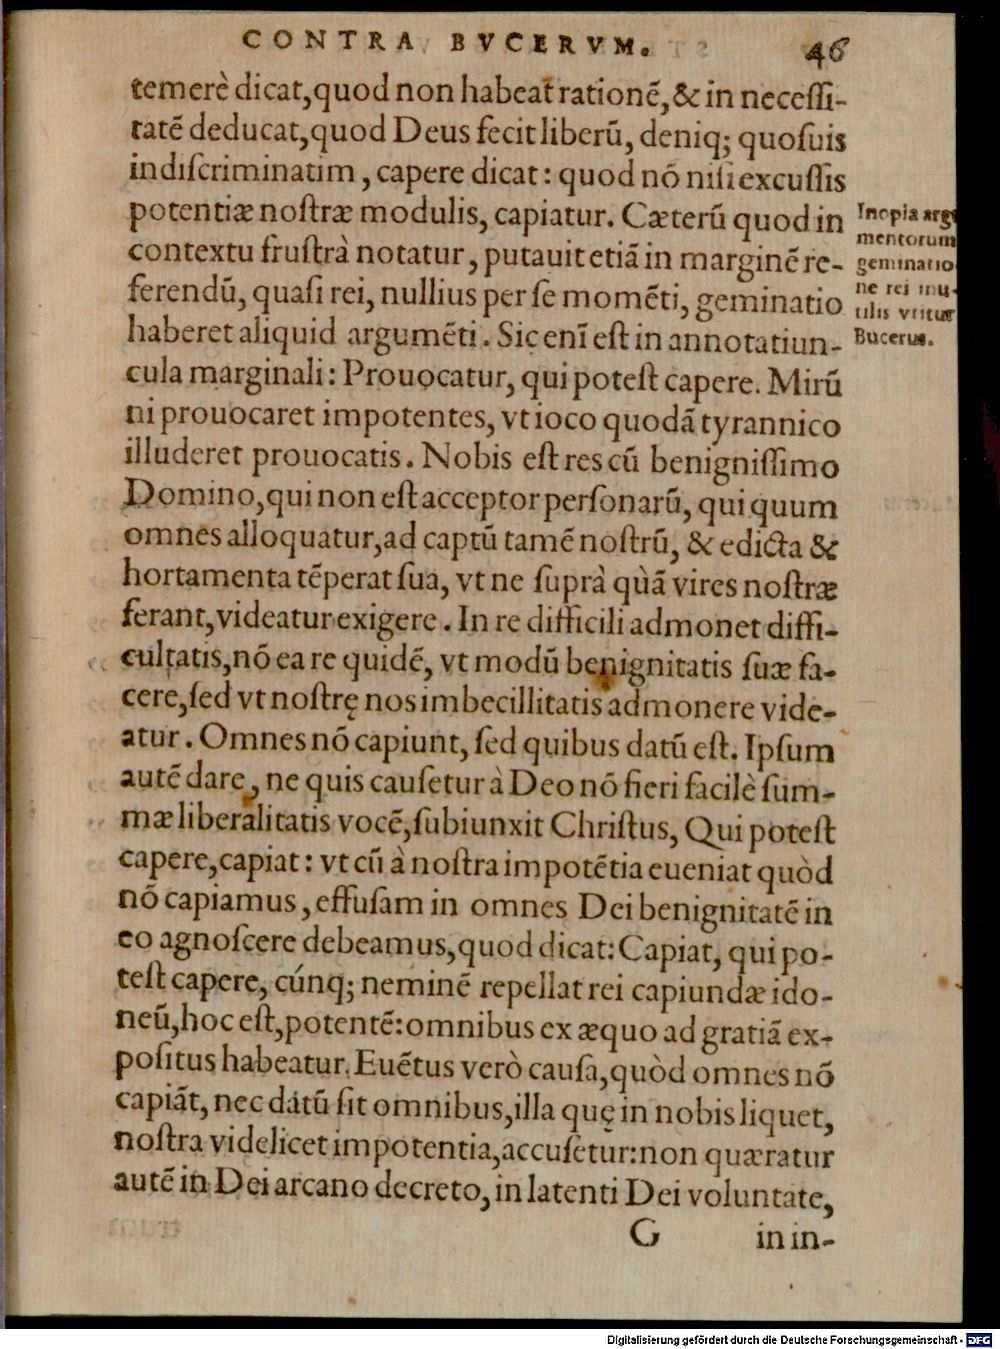 CONTRA BVCERVM. 46
temerè dicat,quod non habeat rationē,& in necessi-
tatē deducat,quod Deus fecit liberū, deniq; quosuis
indiscriminatim, capere dicat: quod nō nisi excussis
potentiæ nostræ modulis, capiatur. Cæterū quod in
contextu frustrà notatur, putauit etiā in marginē re-
ferendū, quasi rei, nullius per se momēti, geminatio
haberet aliquid argumēti. Sic enī est in annotatiun-
cula marginali: Prouocatur, qui potest capere. Mirū
ni prouocaret impotentes, vt ioco quodā tyrannico
illuderet prouocatis. Nobis est res cū benignissimo
Domino,qui non est acceptor personarū, qui quum
omnes alloquatur,ad captū tamē nostrū, & edicta &
hortamenta tēperat sua, vt ne suprà quàā vires nostræ
ferant,videatur exigere. In re difficili admonet diffi-
cultatis,nō ea re quidē, vt modū benignitatis suæ fa-
cere,sed vt nostrę nos imbecillitatis admonere vide-
atur. Omnes nō capiunt, sed quibus datū est. Ipsum
autē dare, ne quis causetur à Deo nō fieri facilè sum-
mæ liberalitatis vocē,subiunxit Christus, Qui potest
capere,capiat: vt cū à nostra impotētia eueniat quòd
nō capiamus, effusam in omnes Dei benignitatē in
eo agnoscere debeamus,quod dicat: Capiat, qui po-
test capere, cúnq; neminē repellat rei capiundæ ido-
neū,hoc est,potentē: omnibus ex æquo ad gratiā ex-
positus habeatur. Euētus verò causa,quòd omnes nō
capiāt, nec datū sit omnibus,illa quę in nobis liquet,
nostra videlicet impotentia,accusetur:non quæratur
autē in Dei arcano decreto, in latenti Dei voluntate,
G in in-
Inopia argu
mentorum
geminatio-
ne rei inu-
tilis vtitur
Bucerus.
Digitalisierung gefördert durch die Deutsche Forschungsgemeinschaft - DFG